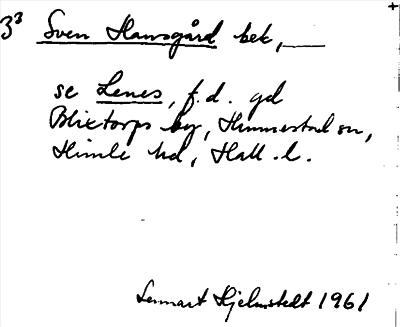 3³ Sven Hansgård bek,
se Lenes, f.d. gd
Blixtorps by, Himmestad sn,
Himle hd, Hall. l.
Lennart Hjelmstedt 1961